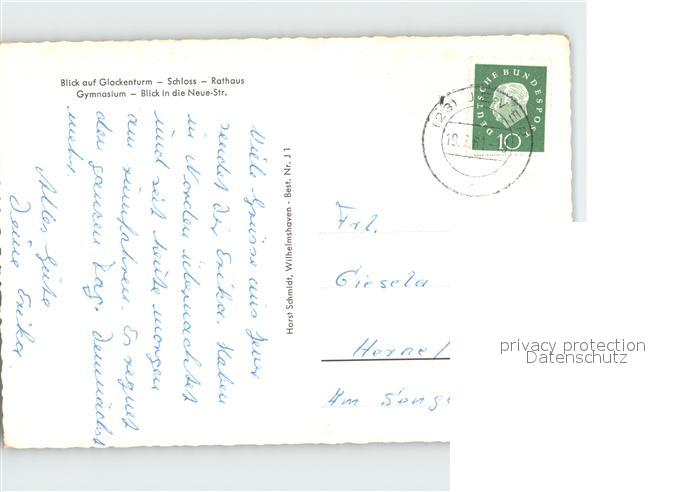 Blick auf Glockenturm – Schloss – Rathaus
Gymnasium – Blick in die Neue-Str.
Viele Grüsse aus Jever
sendet Dir Erika. Haben
in Norden übernachtet
und seit heute morgen
am rumfahren. Es regnet
den ganzen Tag. Demnächst
mehr.
Alles Gute
Deine Erika.
Horst Schmidt, Wilhelmshaven - Best. Nr. J 1
DEUTSCHE BUNDESPOST
10
(23)
Frl.
Giesela
Herne/
Am
privacy protection
Datenschutz